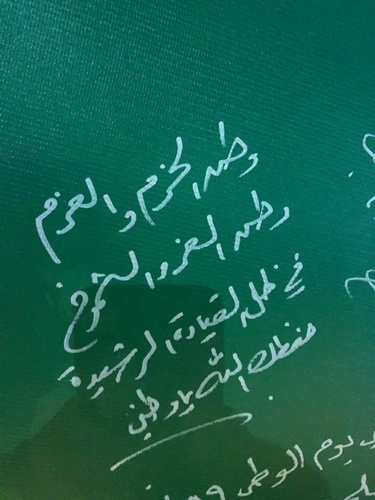 وطن الحزم والعزم
وطن العز والشموخ
في ظل القيادة الرشيدة
حفظك الله ياوطني
يوم الوطني